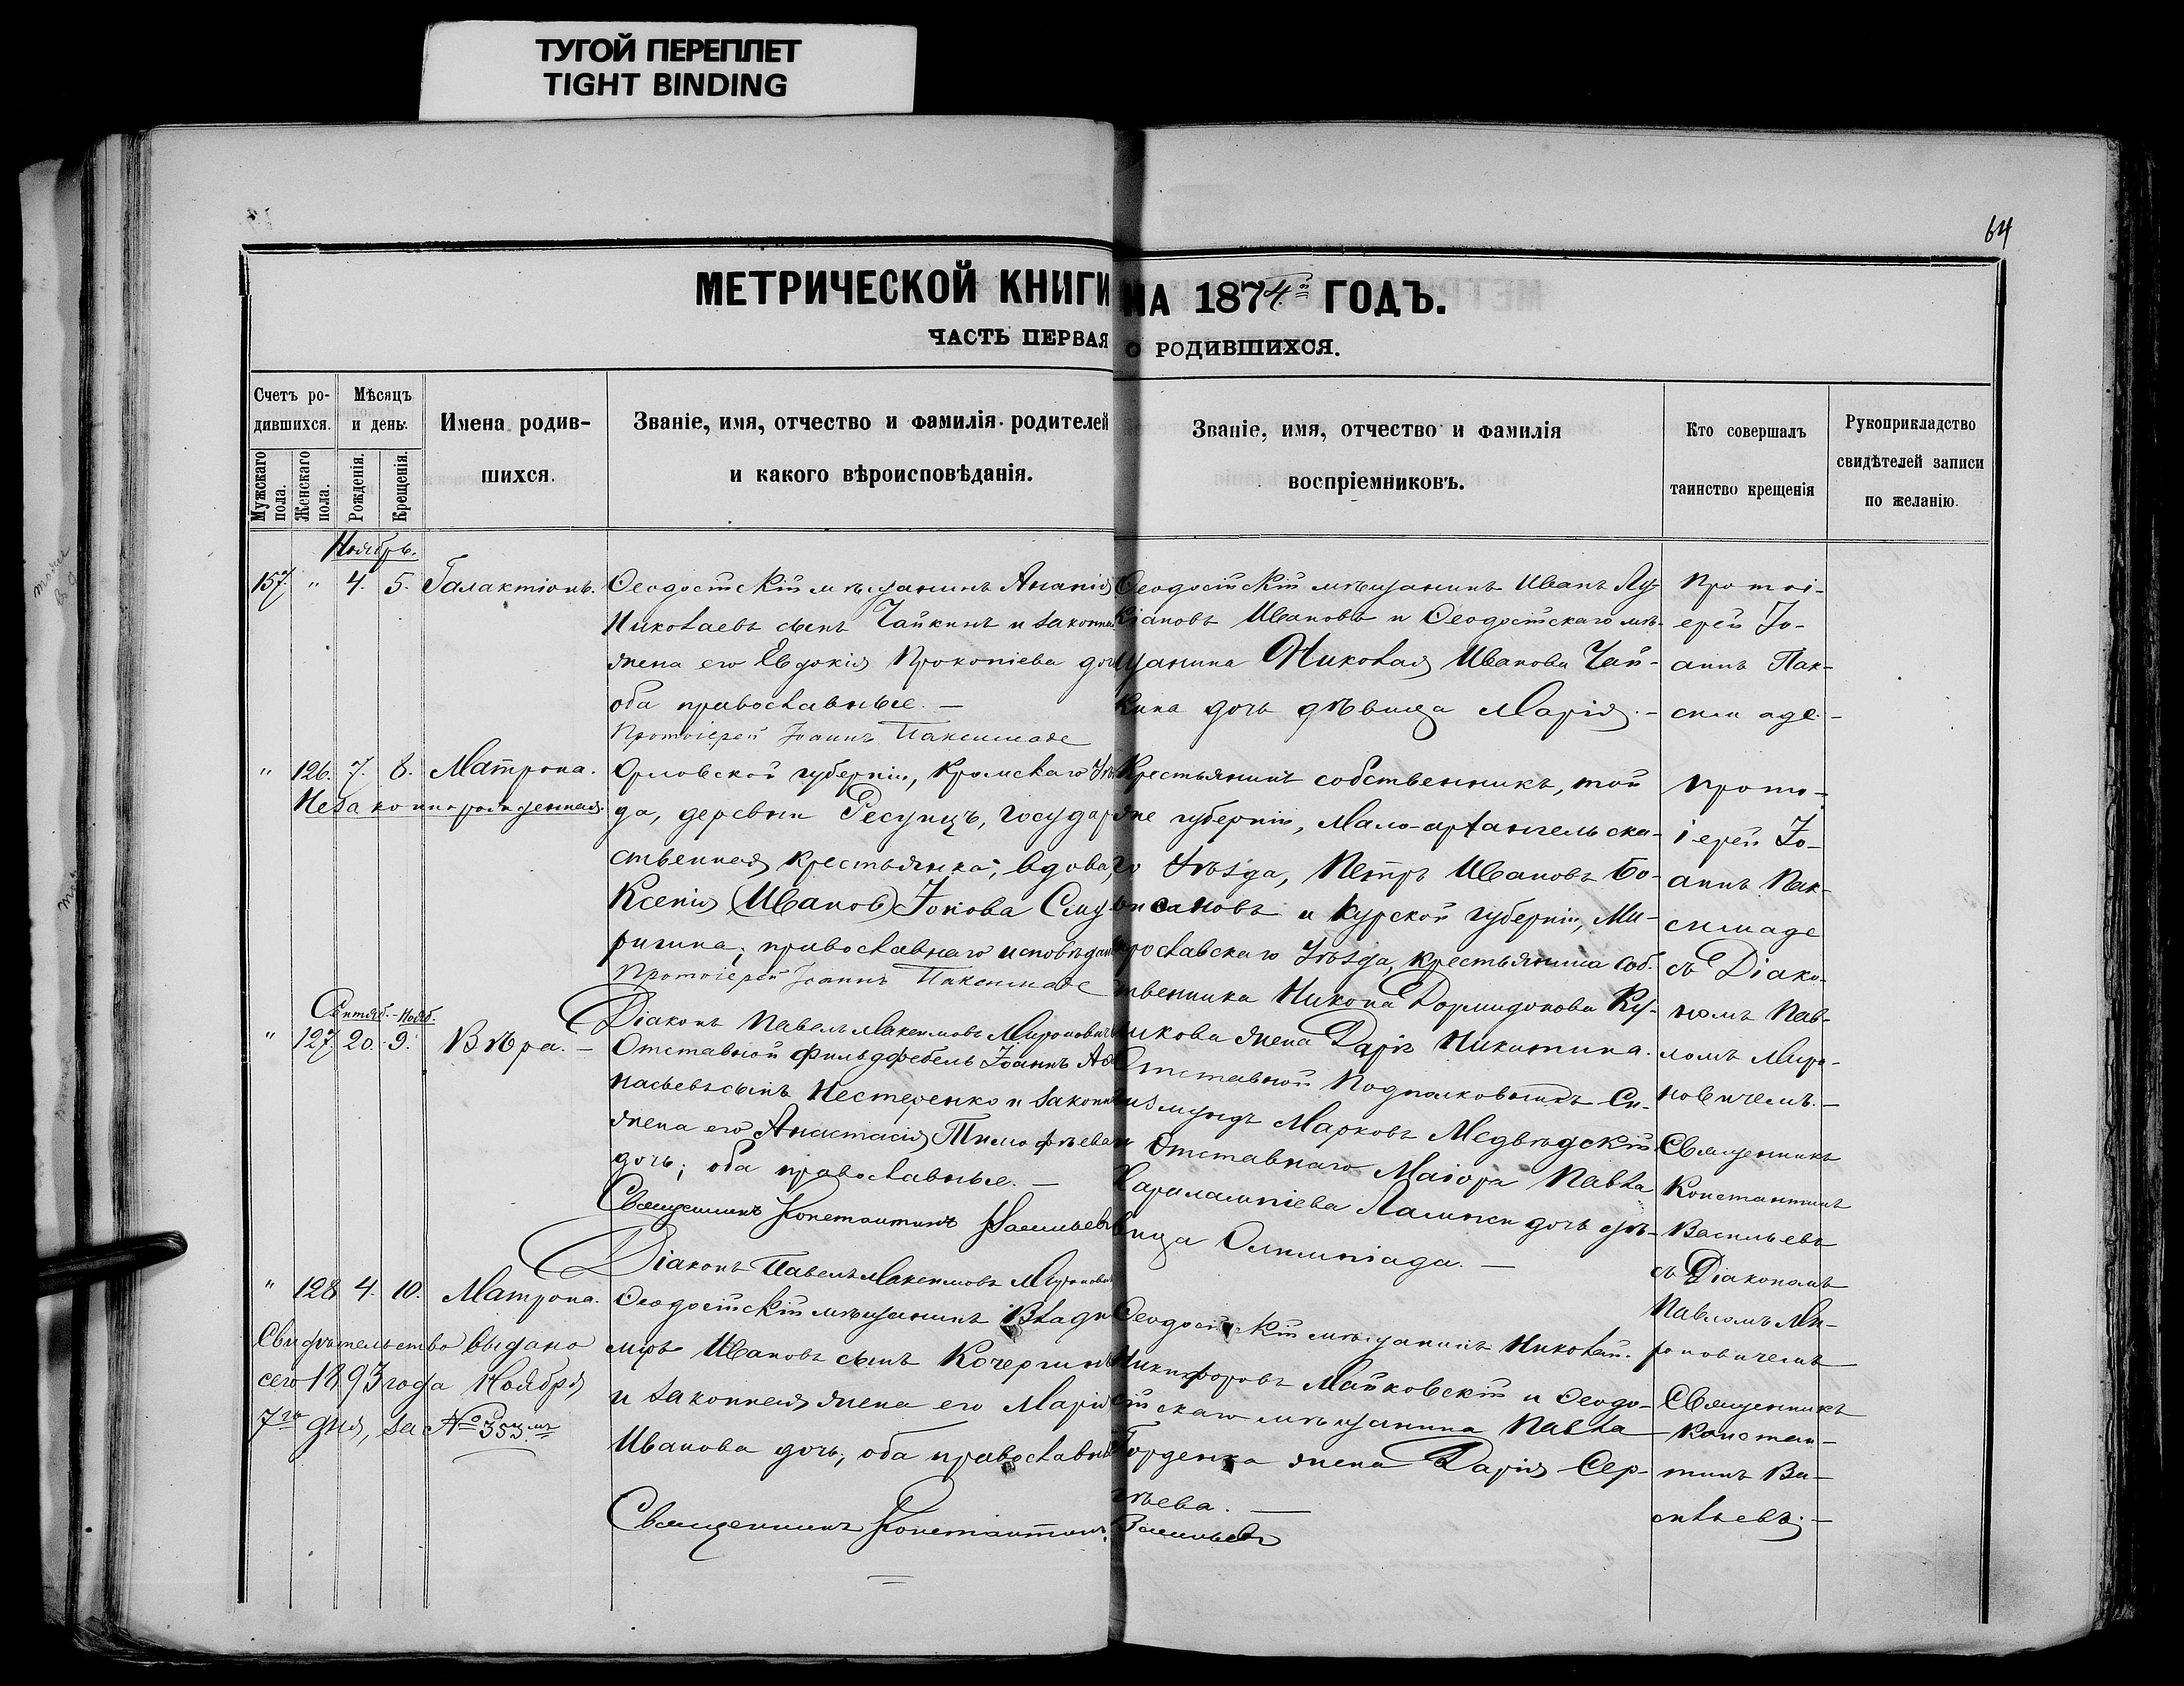 ТУГОЙ ПЕРЕПЛЕТ
TIGHT BINDING
64
МЕТРИЧЕСКОЙ КНИГИ НА 1874й ГОДЪ.
ЧАСТЬ ПЕРВАЯ О РОДИВШИХСЯ.
Счетъ ро-
дившихся.
Мужскаго пола.
Женскаго пола.
Мѣсяцъ
и день.
Рожденія.
Крещенія.
Имена родив-
шихся.
Званіе, имя, отчество и фамилія родителей
и какого вѣроисповѣданія.
Званіе, имя, отчество и фамилія
воспріемниковъ.
Кто совершалъ
таинство крещенія
Рукоприкладство
свидѣтелей записи
по желанію.
Ноябрь.
157. " 4. 5. Галактіонъ.
Ѳеодосійскій мѣщанинъ Ананія
Николаевъ сынъ Чайкинъ и законная
жена его Евдокія Прокопіева дочь
оба православные. —
Протоіерей Іоаннъ Паксимаде
Ѳеодосійскій мѣщанинъ Иванъ Лу-
кіановъ Ивановъ и Ѳеодосійскаго мѣ-
щанина Николая Иванова Чай-
кина дочь дѣвица Марія. —
Протоі-
ерей Іо-
аннъ Пак-
симаде. —
" 126. 7. 8. Матрона.
Незаконнорожденная
Орловской губерніи, Кромскаго Уѣз
да, деревни Ресуецъ, государ
ственная крестьянка, вдова,
Ксенія (Иванов) Іонова Сту
ригина, православнаго исповѣдан
Протоіерей Іоаннъ Паксимаде
Діаконъ Павелъ Максимовъ Мироновичъ
Крестьянинъ собственникъ, той
же губерніи, Мало-архангельска-
го Уѣзда, Петръ Ивановъ Бо-
и Курской губерніи, Ми-
рославскаго Уѣзда, крестьянина соб-
ственника Никона Дормидонова Ку-
ликова жена Дарія Никитина.
Прото-
іерей Іо-
аннъ Пак-
симаде
съ Діако-
номъ Пав-
ломъ Миро-
новичемъ. —
Сентяб. - Нояб.
" 127. 20. 9. Вѣра. —
Отставной фильдфебель Іоаннъ Аѳа
насьевъ сынъ Нестеренко и законн
жена его Анастасія Тимофѣева
дочь; оба православные. —
Священникъ Константинъ Васильевъ
Діаконъ Павелъ Максимовъ Мироновичъ
Отставной Подполковникъ Си-
гизмундъ Марковъ Медвѣдскій
и отставнаго Маіора Павла
Харалампіева Лалинси дочь дѣ-
вица Олимпіада. —
Священникъ
Константинъ
Васильевъ
съ Діакономъ
Павломъ Ми-
роновичемъ
" 128. 4. 10. Матрона.
Свидѣтельство выдано
сего 1893 года Ноября
7го дня, за № 353мъ
Ѳеодосійскій мѣщанинъ Влади
міръ Ивановъ сынъ Кочергинъ
и законная жена его Марія
Иванова дочь, оба православны
Священникъ Константинъ Васильевъ
Ѳеодосійскій мѣщанинъ Николай
Никифоровъ Майковскій и Ѳеодо-
сійскаго мѣщанина Павла
Горденка жена Дарія Сер-
гѣева. —
Священникъ
Констан-
тинъ Ва-
сильевъ. —